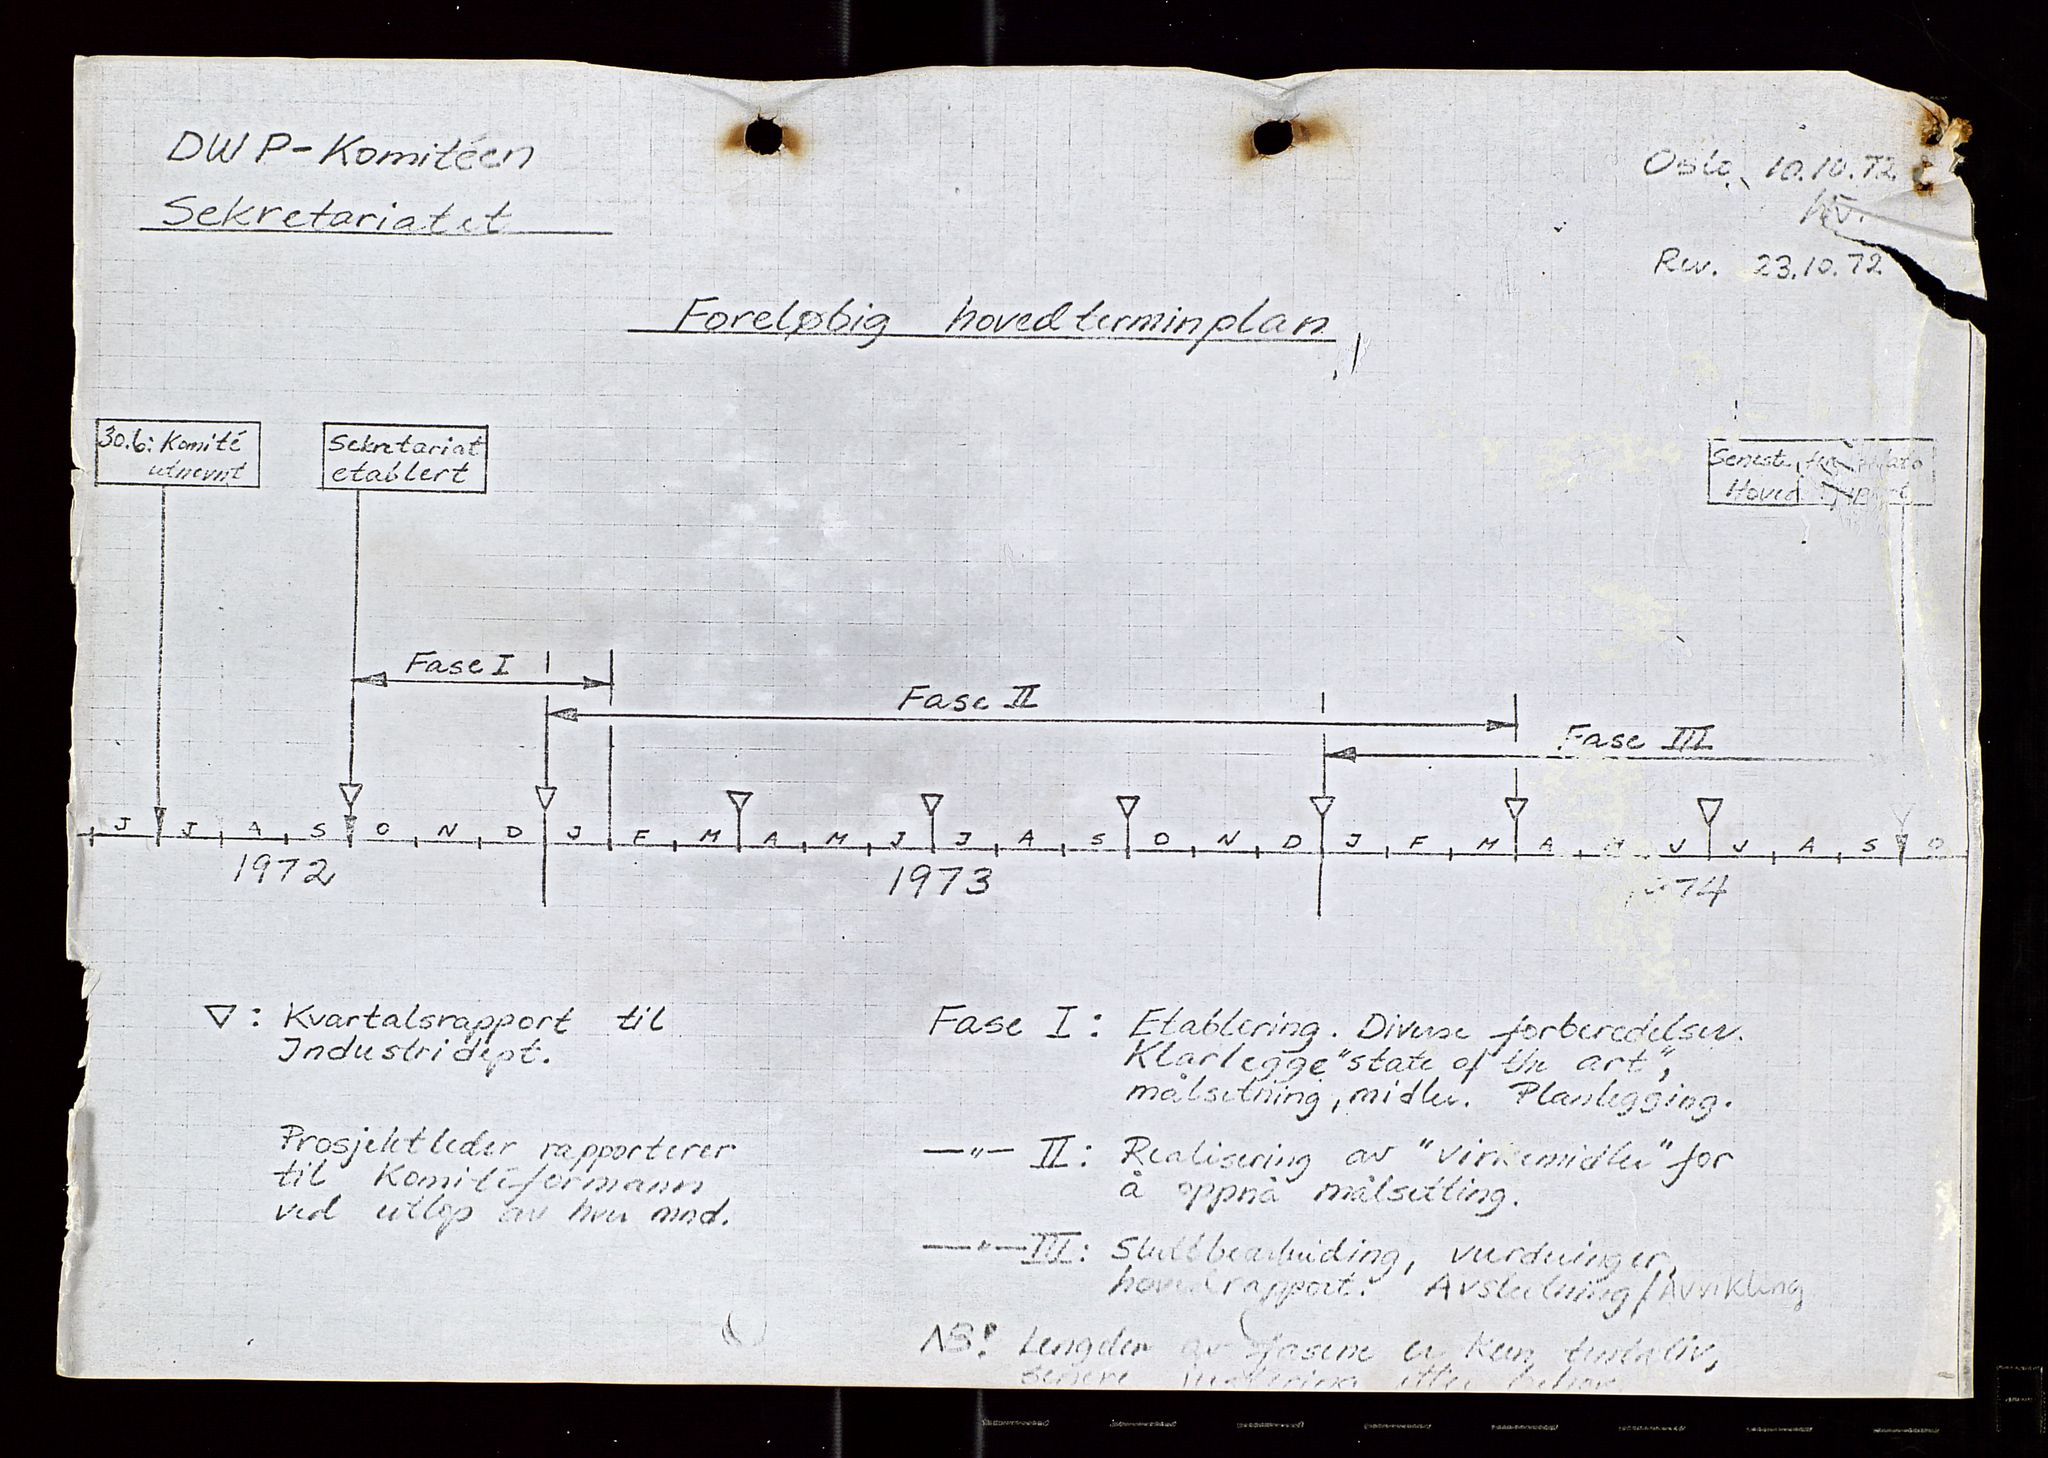 DWP-Komitéen
Sekretariatet
Oslo, 10.10.72
Rev. 23.10.72
Foreløbig hovedterminplan
30.6: Komité
utnevnt
Sekretariat
etablert
Seneste
Hoved
Fase I
Fase II
Fase III
J J A S O N D J F M A M J J A S O N D J F M A M J J A S O
1972
1973
1974
▽: Kvartalsrapport til
Industridept.
Prosjektleder rapporterer
til Komitéformann
ved utløp av hver mnd.
Fase I: Etablering. Diverse forberedelser.
Klarlegge "state of the art",
målsetning, midler. Planlegging.
—"— II: Realisering av "virkemidler" for
å oppnå målsetting.
—"— III: Sluttbearbeiding, vurderinger,
hovedrapport. Avslutning/Avvikling
NB: Lengden av fasene er kun tentativ,
senere justering etter behov.